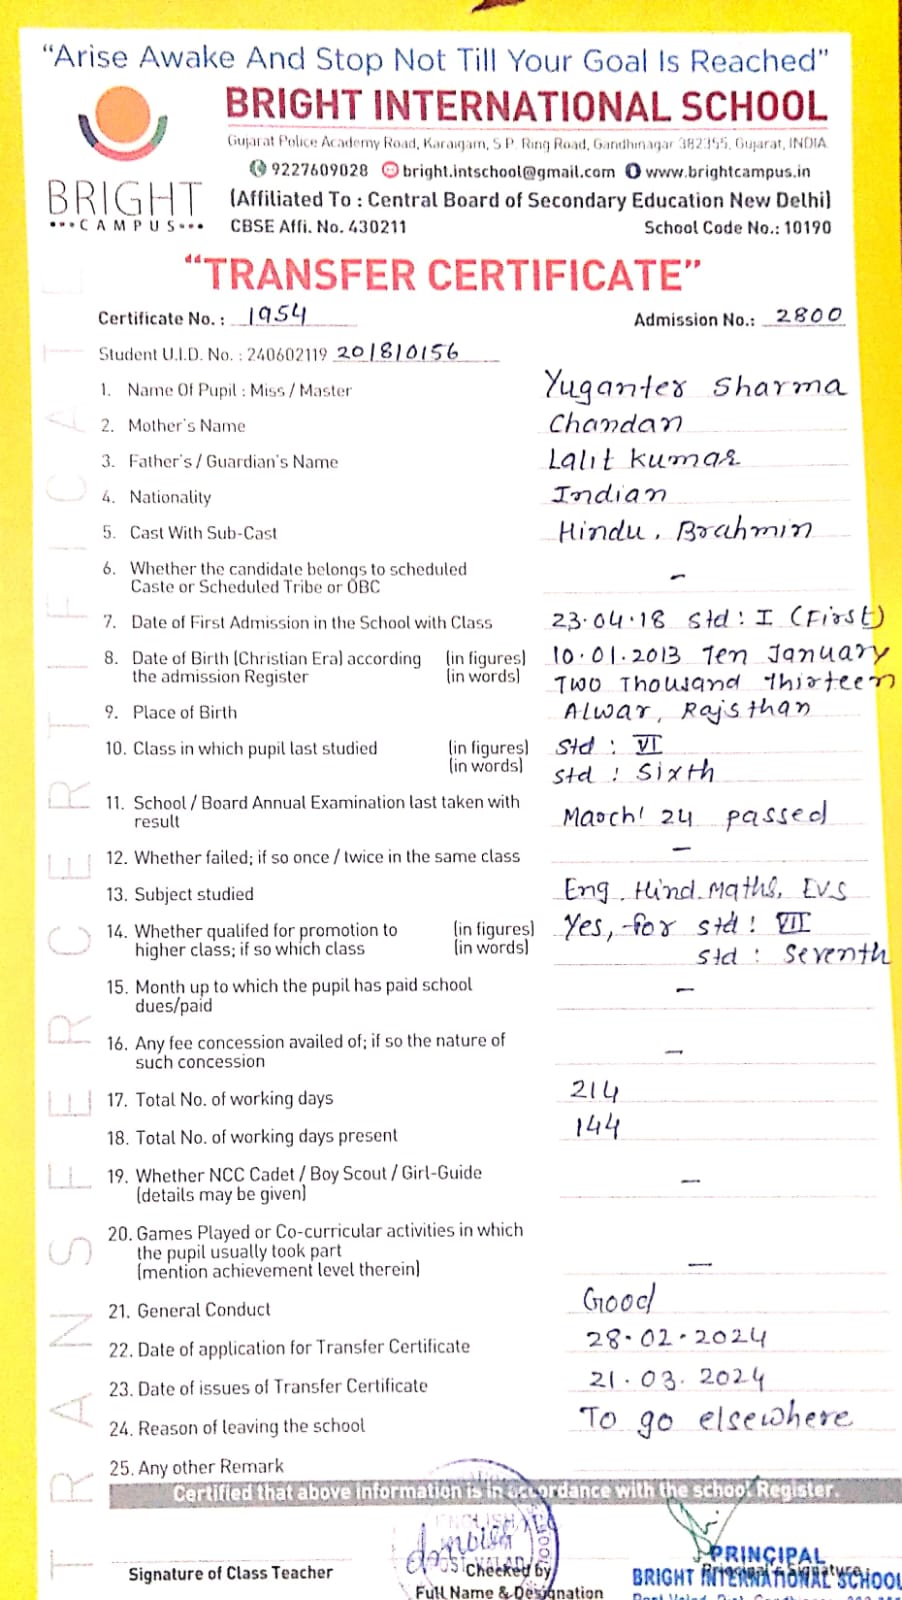 "Arise Awake And Stop Not Till Your Goal Is Reached"
BRIGHT INTERNATIONAL SCHOOL
Gujarat Police Academy Road, Karaigam, S P. Ring Road, Gandhinagar 382355, Gujarat, INDIA
9227609028 bright.intschool@gmail.com www.brightcampus.in
BRIGHT
CAMPUS
(Affiliated To : Central Board of Secondary Education New Delhi)
CBSE Affi. No. 430211 School Code No.: 10190
"TRANSFER CERTIFICATE"
Certificate No. : 1954 Admission No.: 2800
Student U.I.D. No. : 240602119 201810156
1. Name Of Pupil : Miss / Master Yuganter Sharma
2. Mother's Name Chandan
3. Father's / Guardian's Name Lalit Kumar
4. Nationality Indian
5. Cast With Sub-Cast Hindu, Brahmin
6. Whether the candidate belongs to scheduled
Caste or Scheduled Tribe or OBC -
7. Date of First Admission in the School with Class 23.04.18 Std : I (First)
8. Date of Birth (Christian Era) according (in figures) 10.01.2013 Ten January
the admission Register (in words) Two Thousand Thirteen
9. Place of Birth Alwar, Rajsthan
10. Class in which pupil last studied (in figures) Std : VI
(in words) Std : Sixth
11. School / Board Annual Examination last taken with
result March' 24 passed
12. Whether failed; if so once / twice in the same class -
13. Subject studied Eng, Hind, Maths, EVS
14. Whether qualifed for promotion to (in figures) Yes, for std : VII
higher class; if so which class (in words) Std : Seventh
15. Month up to which the pupil has paid school -
dues/paid
16. Any fee concession availed of; if so the nature of -
such concession
17. Total No. of working days 214
18. Total No. of working days present 144
19. Whether NCC Cadet / Boy Scout / Girl-Guide -
(details may be given)
20. Games Played or Co-curricular activities in which
the pupil usually took part
(mention achievement level therein) -
21. General Conduct Good
22. Date of application for Transfer Certificate 28.02.2024
23. Date of issues of Transfer Certificate 21.03.2024
24. Reason of leaving the school To go elsewhere
25. Any other Remark
Certified that above information is in accordance with the school Register.
PRINCIPAL
Signature of Class Teacher Checked by Principal's Signature
BRIGHT INTERNATIONAL SCHOOL
Full Name & Designation
TRANSFER CERTIFICATE